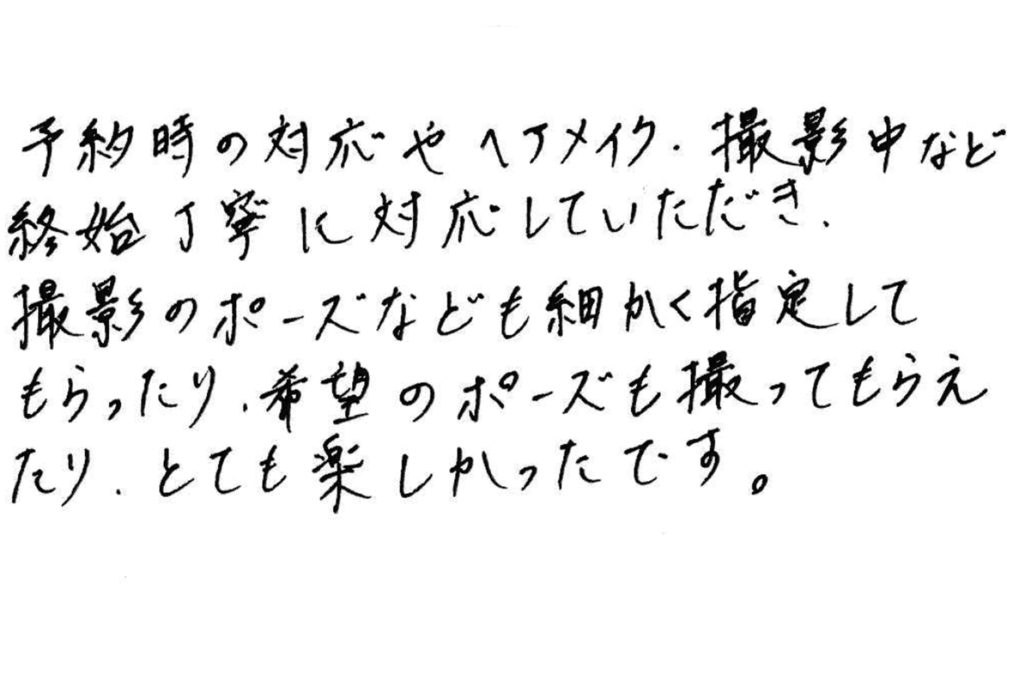 予約時の対応やヘアメイク、撮影中など
終始丁寧に対応していただき、
撮影のポーズなども細かく指定して
もらったり、希望のポーズも撮ってもらえ
たり、とても楽しかったです。